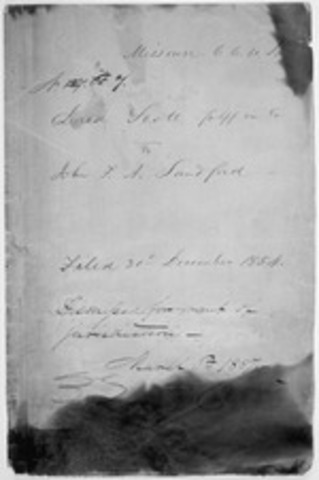 Missouri C. C. U. S.
Dred Scott plff in Er
vs
John F. A. Sandford
Filed 30th December 1854.
Dismissed for want of
jurisdiction —
March 1857